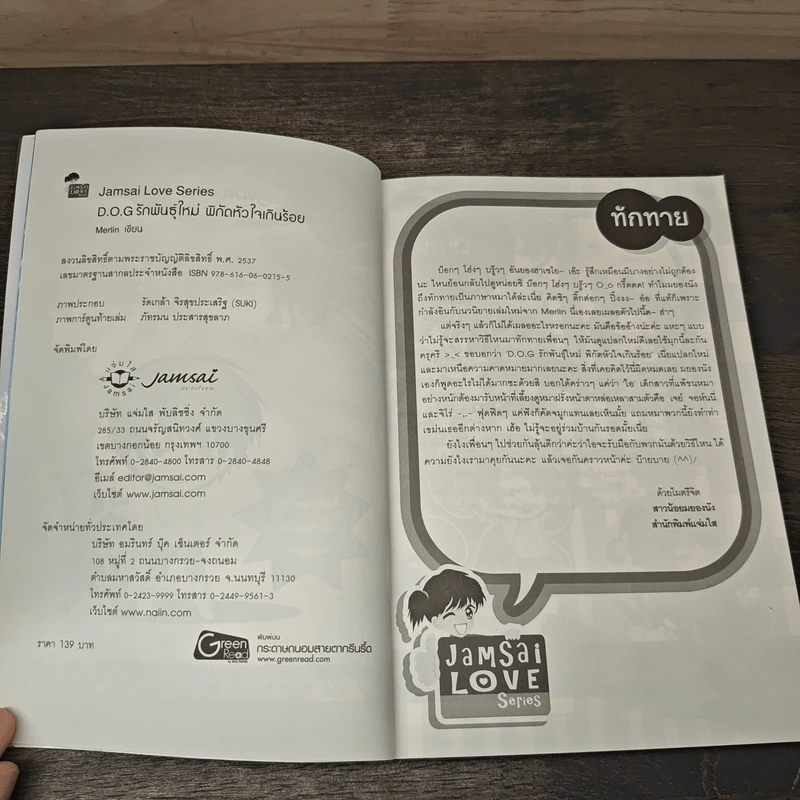 Jamsai Love Series
D.O.G รักพันธุ์ใหม่ พิกัดหัวใจเกินร้อย
Merlin เขียน
สงวนลิขสิทธิ์ตามพระราชบัญญัติลิขสิทธิ์ พ.ศ. 2537
เลขมาตรฐานสากลประจำหนังสือ ISBN 978-616-06-0215-5
ภาพประกอบ รัดเกล้า จิรสุขประเสริฐ (SUKI)
ภาพการ์ตูนท้ายเล่ม ภัทรมน ประสารสุขลาภ
จัดพิมพ์โดย
แจ่มใส
Jamsai
Jamsai
ประกายใจคุณ
บริษัท แจ่มใส พับลิชชิ่ง จำกัด
285/33 ถนนจรัญสนิทวงศ์ แขวงบางขุนศรี
เขตบางกอกน้อย กรุงเทพฯ 10700
โทรศัพท์ 0-2840-4800 โทรสาร 0-2840-4848
อีเมล์ editor@jamsai.com
เว็บไซต์ www.jamsai.com
จัดจำหน่ายทั่วประเทศโดย
บริษัท อมรินทร์ บุ๊ค เซ็นเตอร์ จำกัด
108 หมู่ที่ 2 ถนนบางกรวย-จงถนอม
ตำบลมหาสวัสดิ์ อำเภอบางกรวย จ.นนทบุรี 11130
โทรศัพท์ 0-2423-9999 โทรสาร 0-2449-9561-3
เว็บไซต์ www.naiin.com
ราคา 139 บาท
Green Read
พิมพ์บน
กระดาษถนอมสายตากรีนรี้ด
www.greenread.com
ทักทาย
บ๊อกๆ โฮ่งๆ บรู๊วๆ อันยองฮาเซโย~ เอ๊ะ รู้สึกเหมือนมีบางอย่างไม่ถูกต้อง
นะ ไหนย้อนกลับไปดูหน่อยซิ บ๊อกๆ โฮ่งๆ บรู๊วๆ O_o กรี๊ดดด! ทำไมมยองนัง
ถึงทักทายเป็นภาษาหมาได้ล่ะเนี่ย คิดซิๆ ติ๊กต่อกๆ ปิ๊งงงง~ อ๋อ ที่แท้ก็เพราะ
กำลังอินกับนวนิยายเล่มใหม่จาก Merlin นี่เองเลยเผลอตัวไปนี้ด~ ฮ่าๆ
แต่จริงๆ แล้วก็ไม่ได้เผลออะไรหรอกนะคะ มันคือข้ออ้างน่ะค่ะ แหะๆ แบบ
ว่าไม่รู้จะสรรหาวิธีไหนมาทักทายเพื่อนๆ ให้มันดูแปลกใหม่ดีเลยใช้มุกนี้ละกัน
ครุคริ >_< ขอบอกว่า 'D.O.G รักพันธุ์ใหม่ พิกัดหัวใจเกินร้อย' เนี่ยแปลกใหม่
และมาเหนือความคาดหมายมากเลยนะคะ สิ่งที่เคยคิดไว้นี่ผิดหมดเลย มยองนัง
เองก็พูดอะไรไม่ได้มากซะด้วยสิ บอกได้คร่าวๆ แค่ว่า 'ไอ' เด็กสาวที่แพ้ขนหมา
อย่างหนักต้องมารับหน้าที่เลี้ยงดูหมาฝรั่งหน้าตาหล่อเหลาสามตัวคือ เจย์ จอห์นนี่
และจิโร่ -,.- ฟุดฟิดๆ แค่ฟังก็คัดจมูกแทนเลยเห็นมั้ย แถมหมาพวกนี้ยังทำท่า
เขม่นเธออีกต่างหาก เฮ้อ ไม่รู้จะอยู่ร่วมบ้านกันรอดมั้ยเนี่ย
ยังไงเพื่อนๆ ไปช่วยกันลุ้นดีกว่าค่ะว่าไอจะรับมือกับพวกมันด้วยวิธีไหน ได้
ความยังไงเรามาคุยกันนะคะ แล้วเจอกันคราวหน้าค่ะ บ๊ายบาย (^^)/
ด้วยไมตรีจิต
สาวน้อยมยองนัง
สำนักพิมพ์แจ่มใส
JAMSAI
LOVE
Series